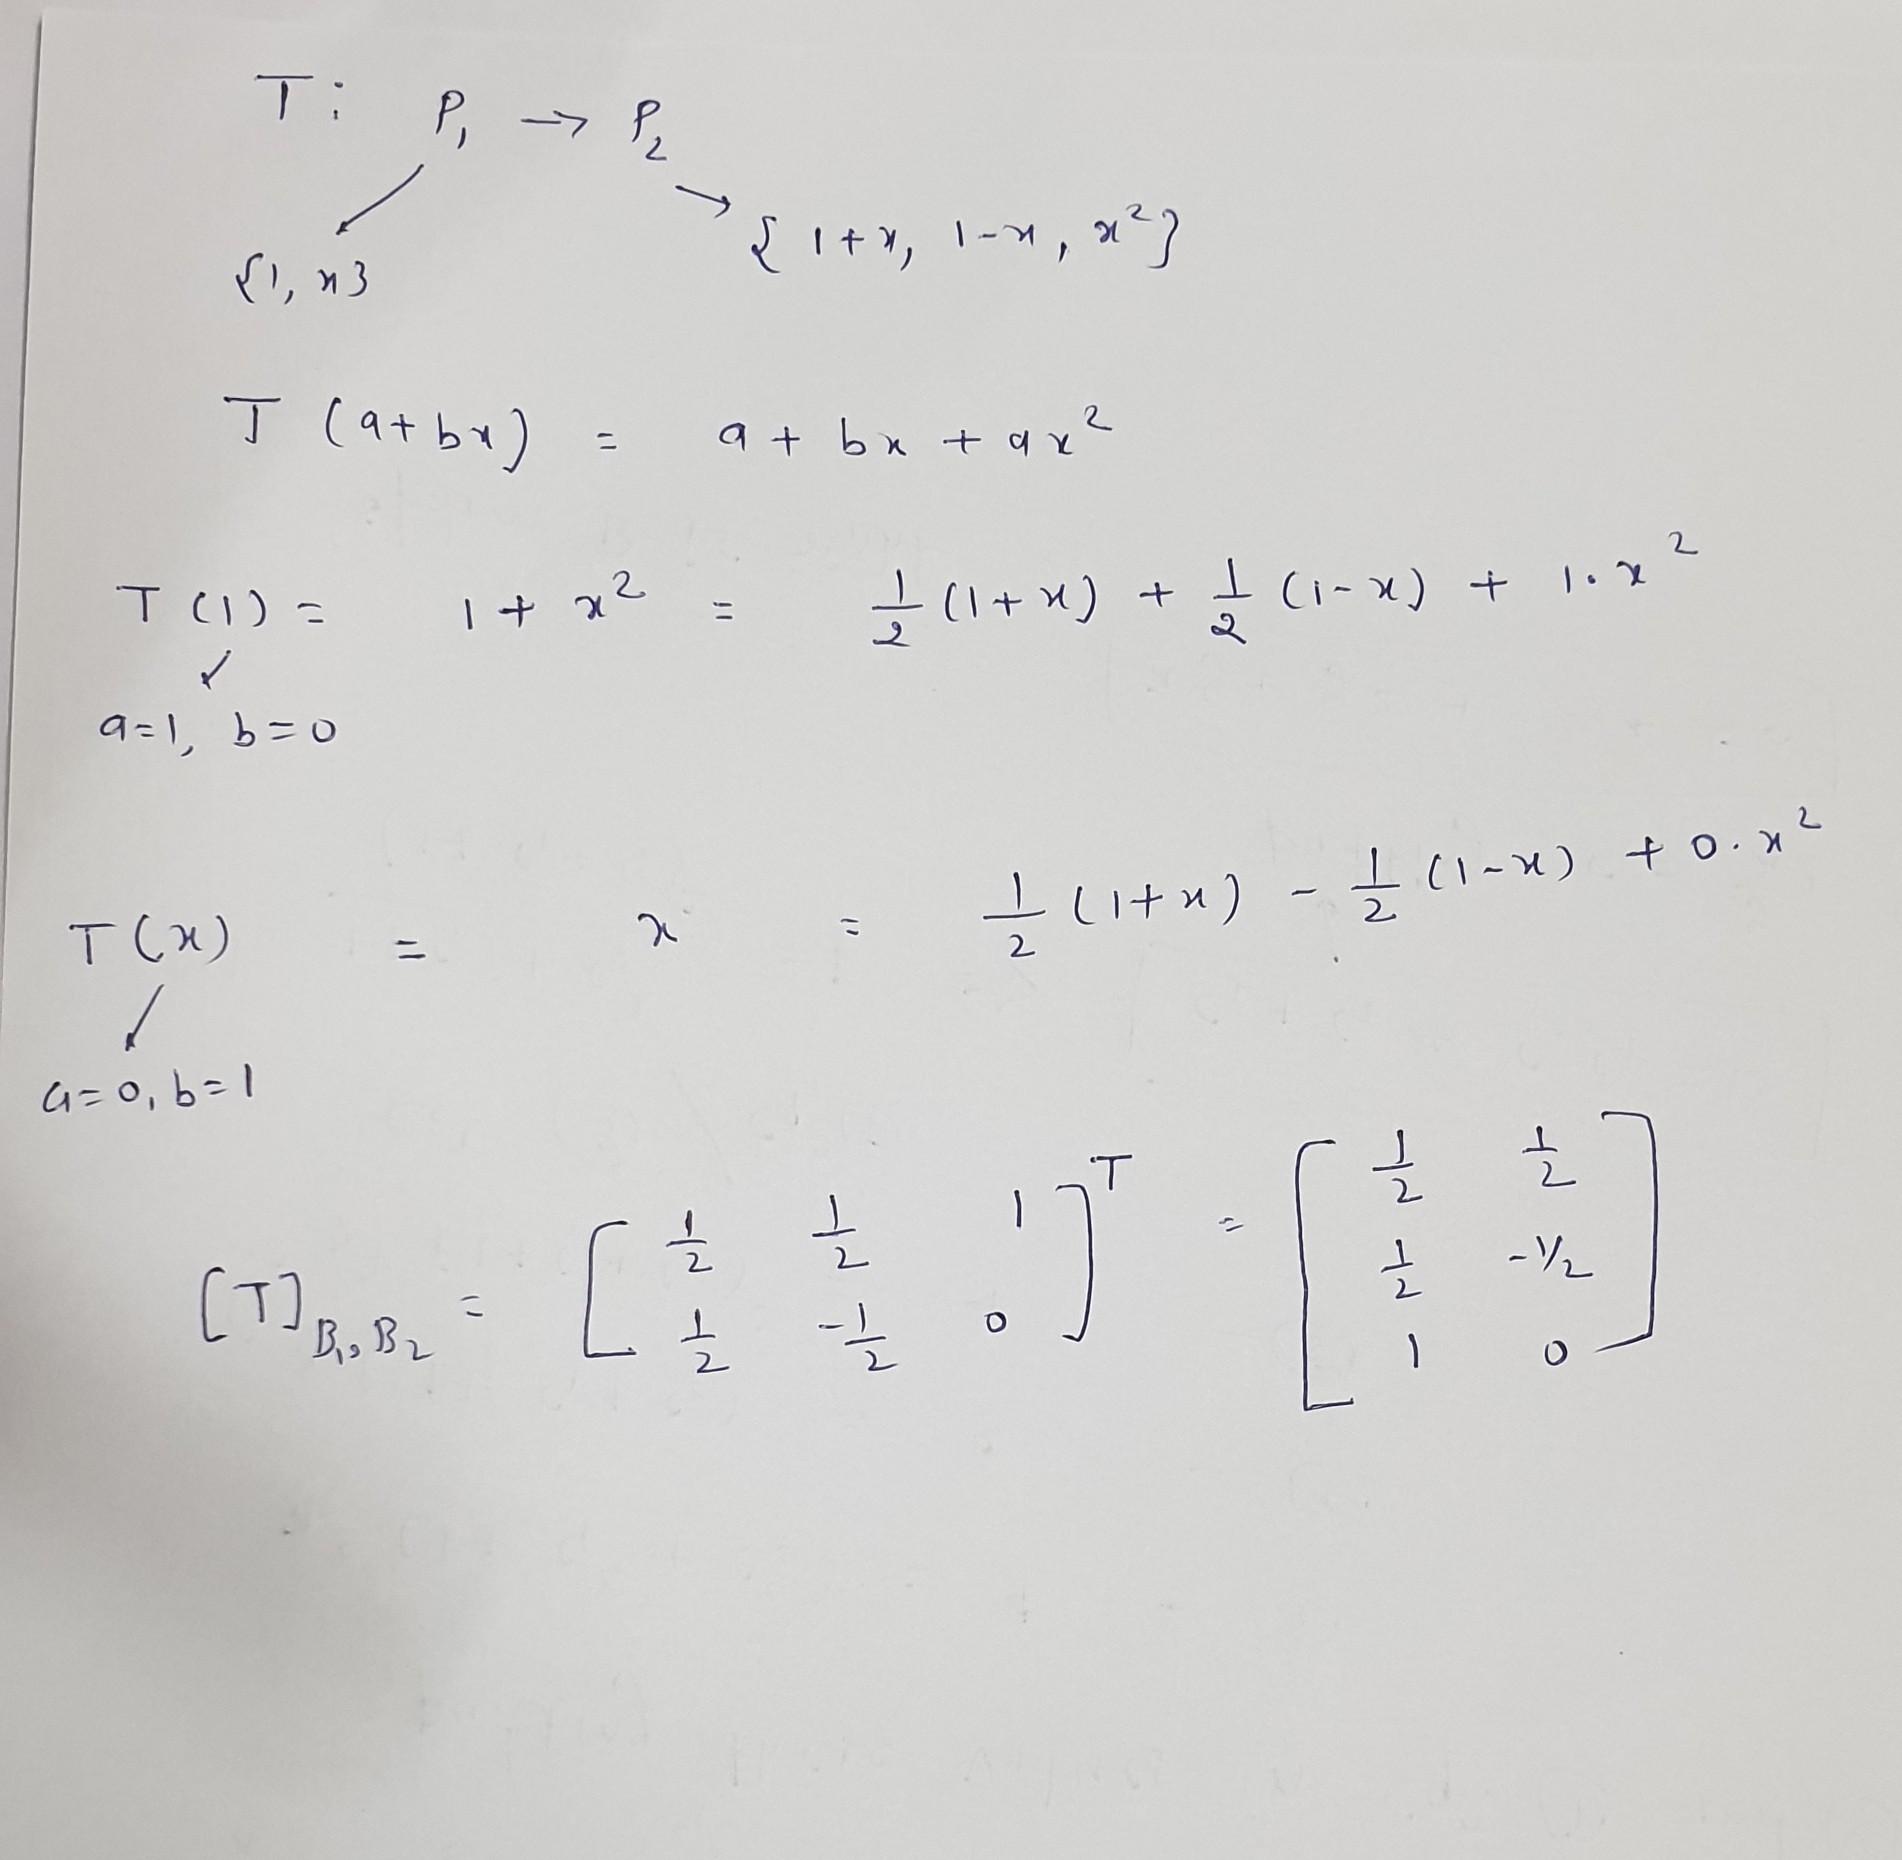 T : P₁ → P₂
{1, x} {1+x, 1-x, x²}
T (a+bx) = a + bx + ax²
T (1) = 1 + x² = 1/2 (1+x) + 1/2 (1-x) + 1.x²
a=1, b=0
T(x) = x = 1/2 (1+x) - 1/2 (1-x) + 0.x²
a=0, b=1
[T]B₁,B₂ = [1/2 1/2 1; 1/2 -1/2 0]ᵀ = [1/2 1/2; 1/2 -1/2; 1 0]